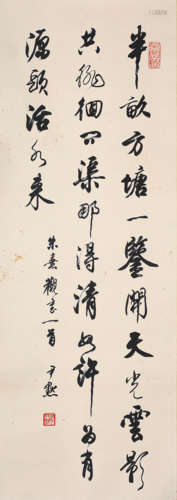 半畝方塘一鑒開天光雲影
共徘徊問渠那得清如許為有
源頭活水来
朱熹觀書一首 尹默